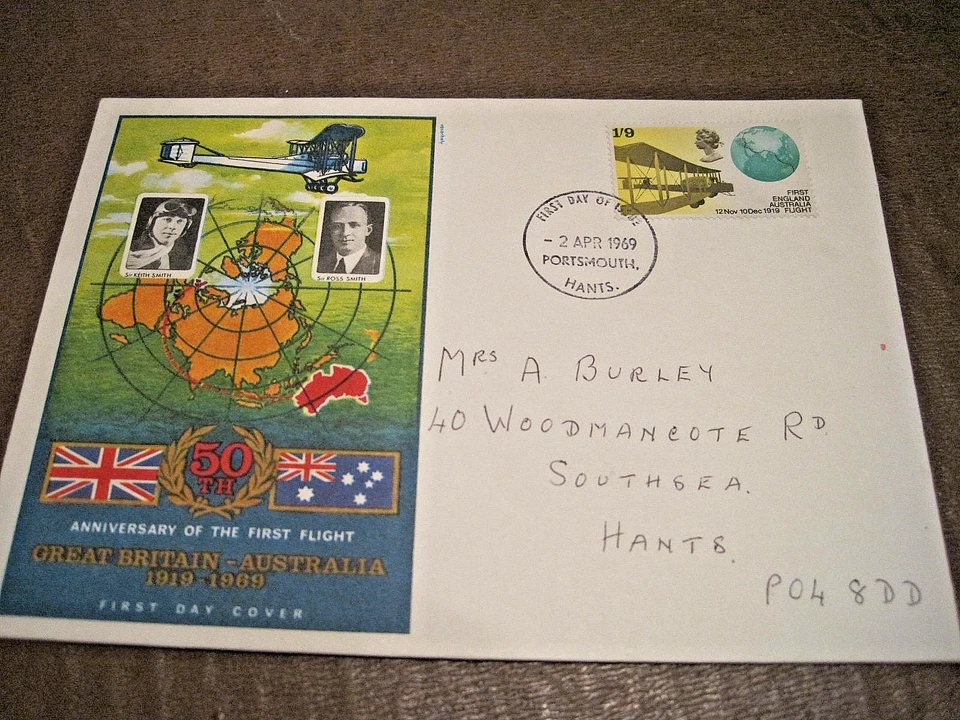 Sir KEITH SMITH
Sir ROSS SMITH
50
TH
ANNIVERSARY OF THE FIRST FLIGHT
GREAT BRITAIN - AUSTRALIA
1919-1969
FIRST DAY COVER
1/9
FIRST
ENGLAND
AUSTRALIA
12Nov 10Dec 1919 FLIGHT
FIRST DAY OF ISSUE
- 2 APR 1969
PORTSMOUTH,
HANTS.
MRS A. BURLEY
40 WOODMANCOTE RD.
SOUTHSEA.
HANTS.
PO4 8DD